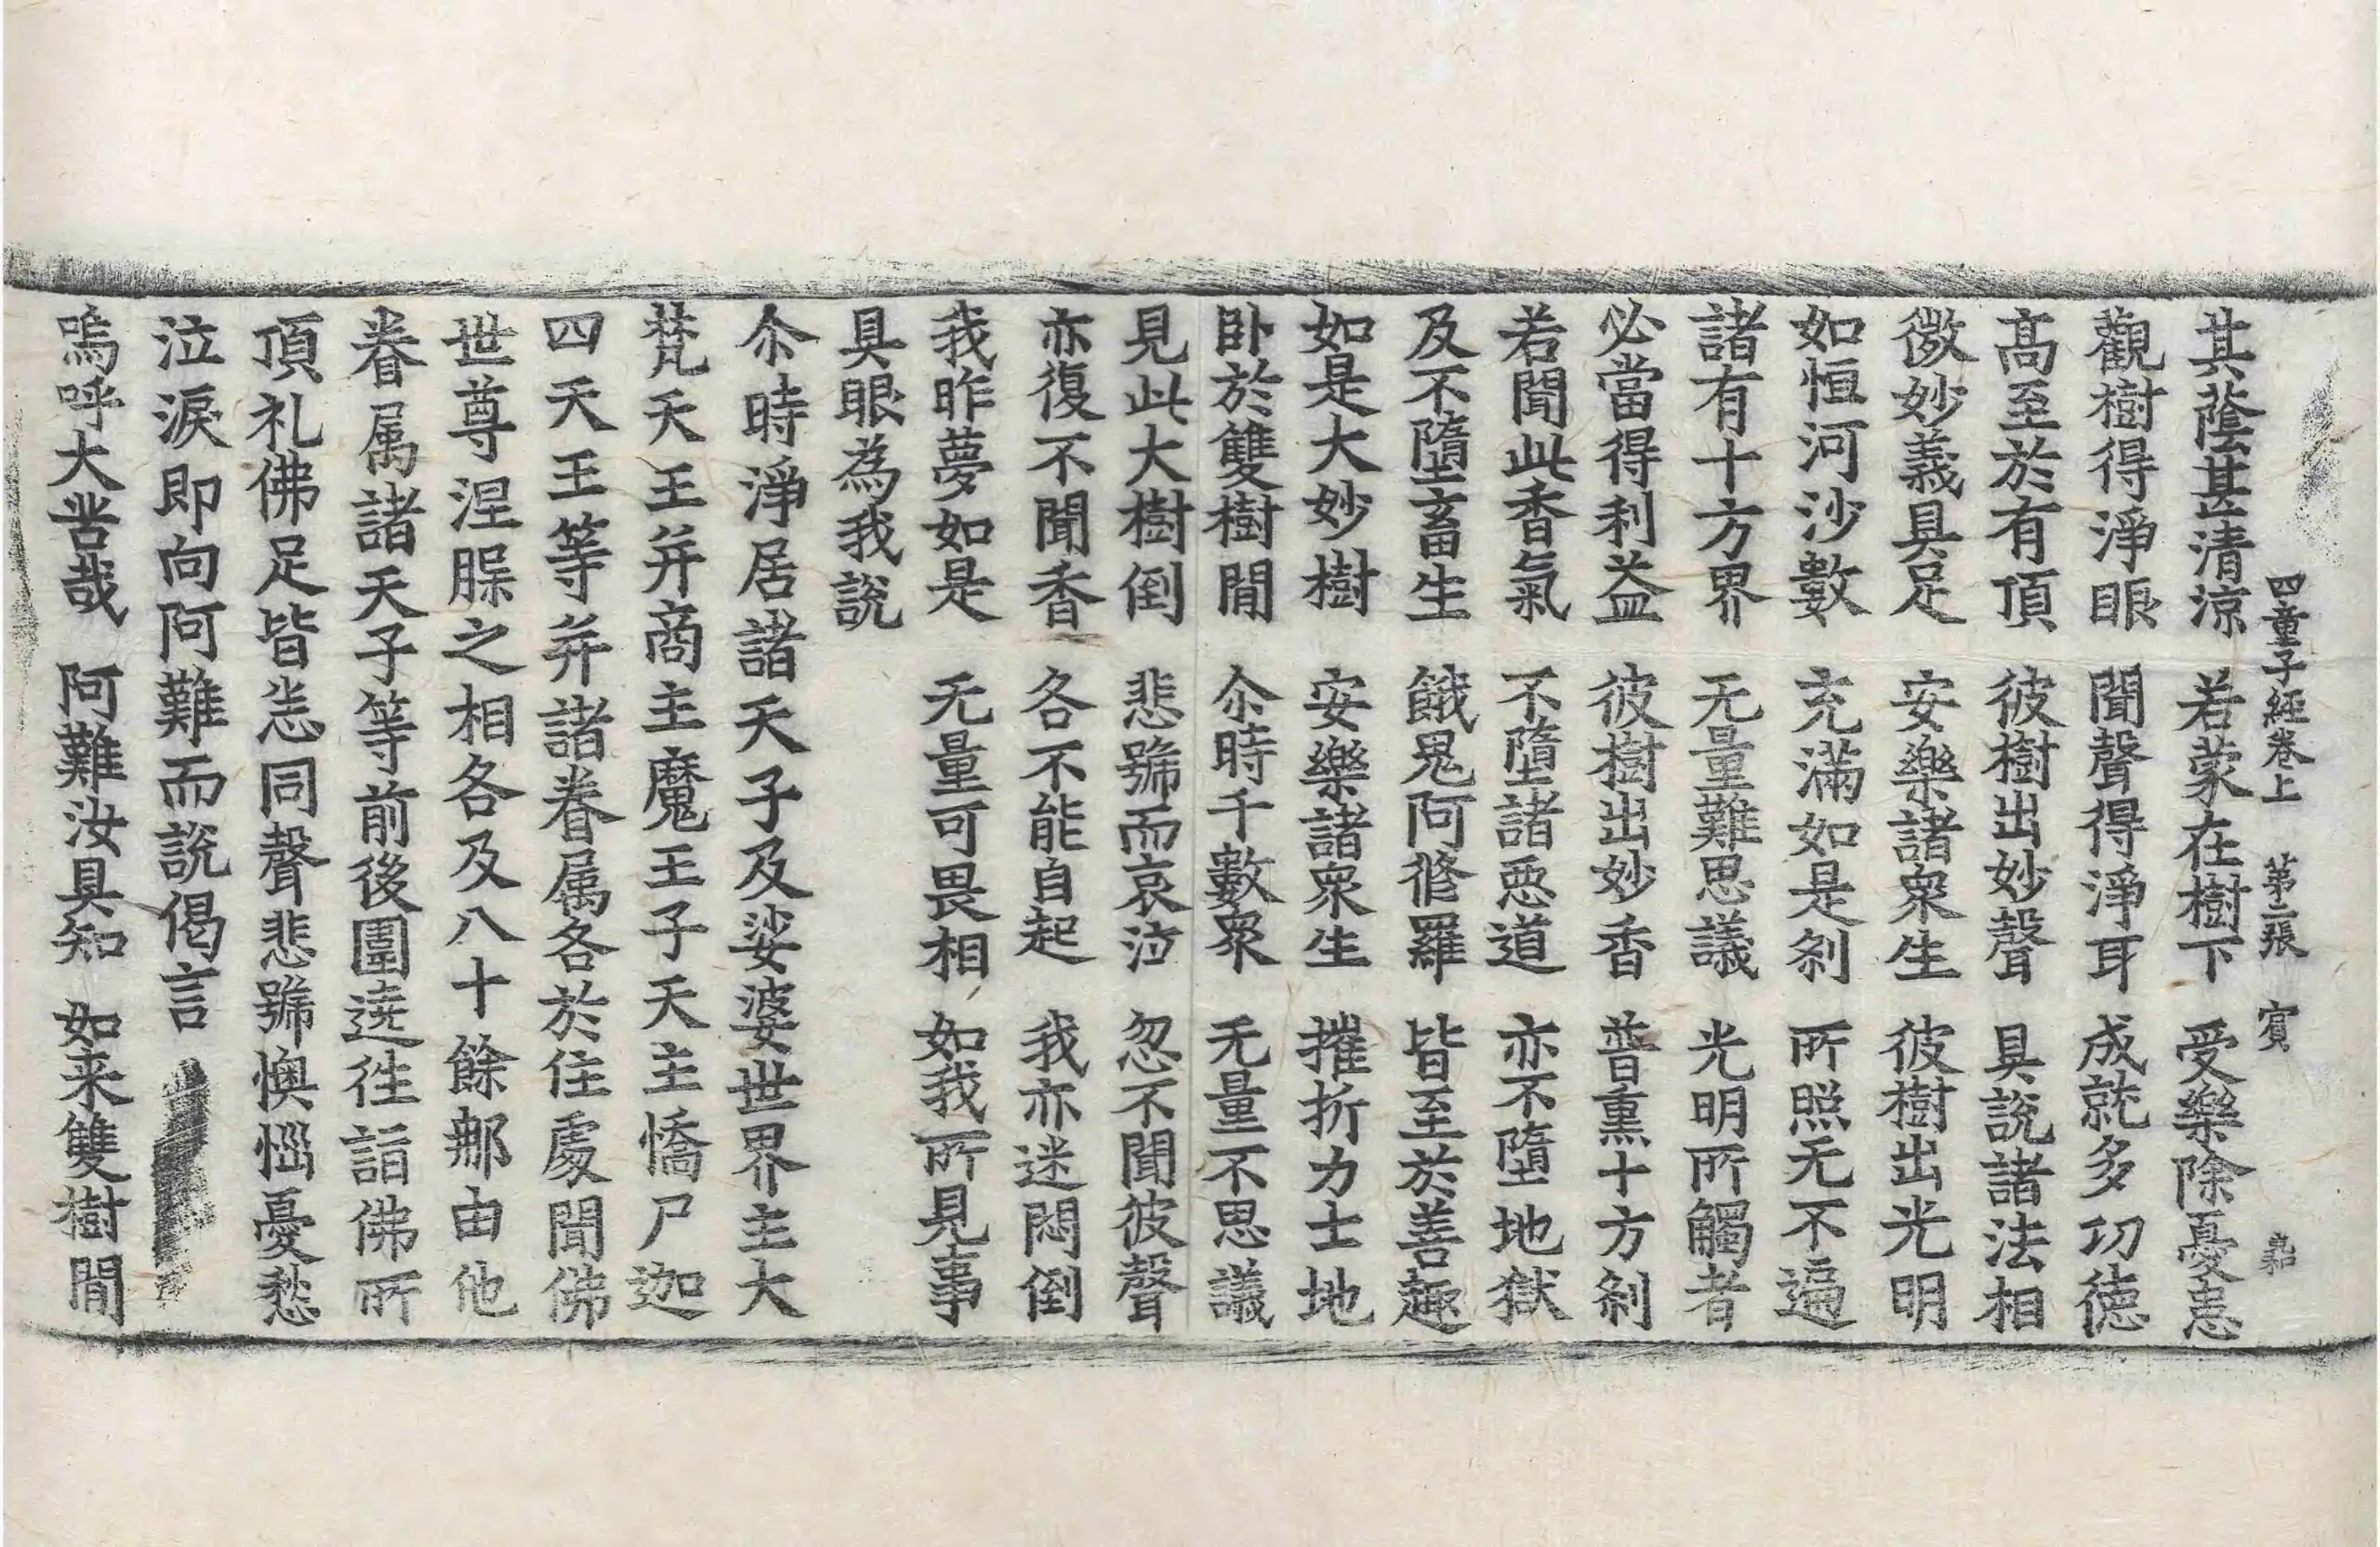 四童子經卷上　第二張　賓
其蔭甚清涼　若蒙在樹下　受樂除憂恚
觀樹得淨眼　聞聲得淨耳　成就多功德
髙至於有頂　彼樹出妙聲　具說諸法相
微妙義具足　安樂諸衆生　彼樹出光明
如恒河沙數　充滿如是刹　所照无不遍
諸有十方界　无量難思議　光明所觸者
必當得利益　彼樹出妙香　普熏十方刹
若聞此香氣　不墮諸惡道　亦不墮地獄
及不墮畜生　餓鬼阿脩羅　皆至於善趣
如是大妙樹　安樂諸衆生　摧折力士地
卧於雙樹閒　尒時千數衆　无量不思議
見此大樹倒　悲號而哀泣　忽不聞彼聲
亦復不聞香　各不能自起　我亦迷悶倒
我昨夢如是　无量可畏相　如我所見事
具眼為我說
尒時淨居諸天子及娑婆世界主大
梵天王并商主魔王子天主憍尸迦
四天王等并諸眷属各於住處聞佛
世尊涅槃之相各及八十餘那由他
眷属諸天子等前後圍遶徃詣佛所
頂礼佛足皆悉同聲悲號懊惱憂愁
泣淚即向阿難而說偈言
嗚呼大苦哉　阿難汝具知　如来雙樹閒